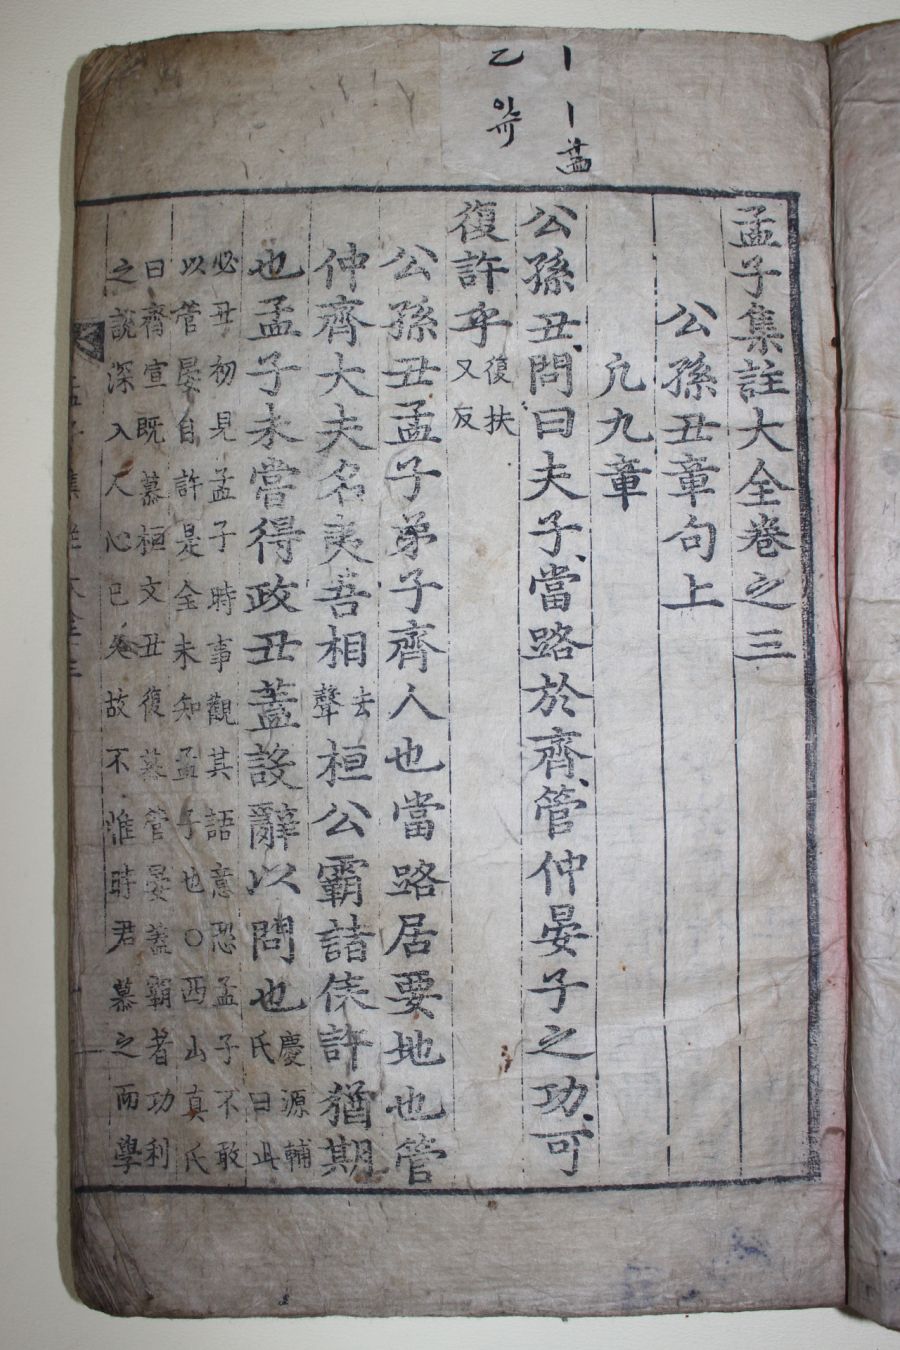 孟子集註大全卷之三
公孫丑章句上
凡九章
公孫丑問曰夫子當路於齊管仲晏子之功可
復許乎復扶又反
公孫丑孟子弟子齊人也當路居要地也管
仲齊大夫名夷吾相去聲桓公霸諸侯許猶期
也孟子未嘗得政丑蓋設辭以問也慶源輔氏曰此
必丑初見孟子時事觀其語意恐孟子不敢
以管晏自許是全未知孟子也○西山真氏
曰齊宣既慕桓文丑復慕管晏蓋霸者功利
之說深入人心已久故不惟時君慕之而學